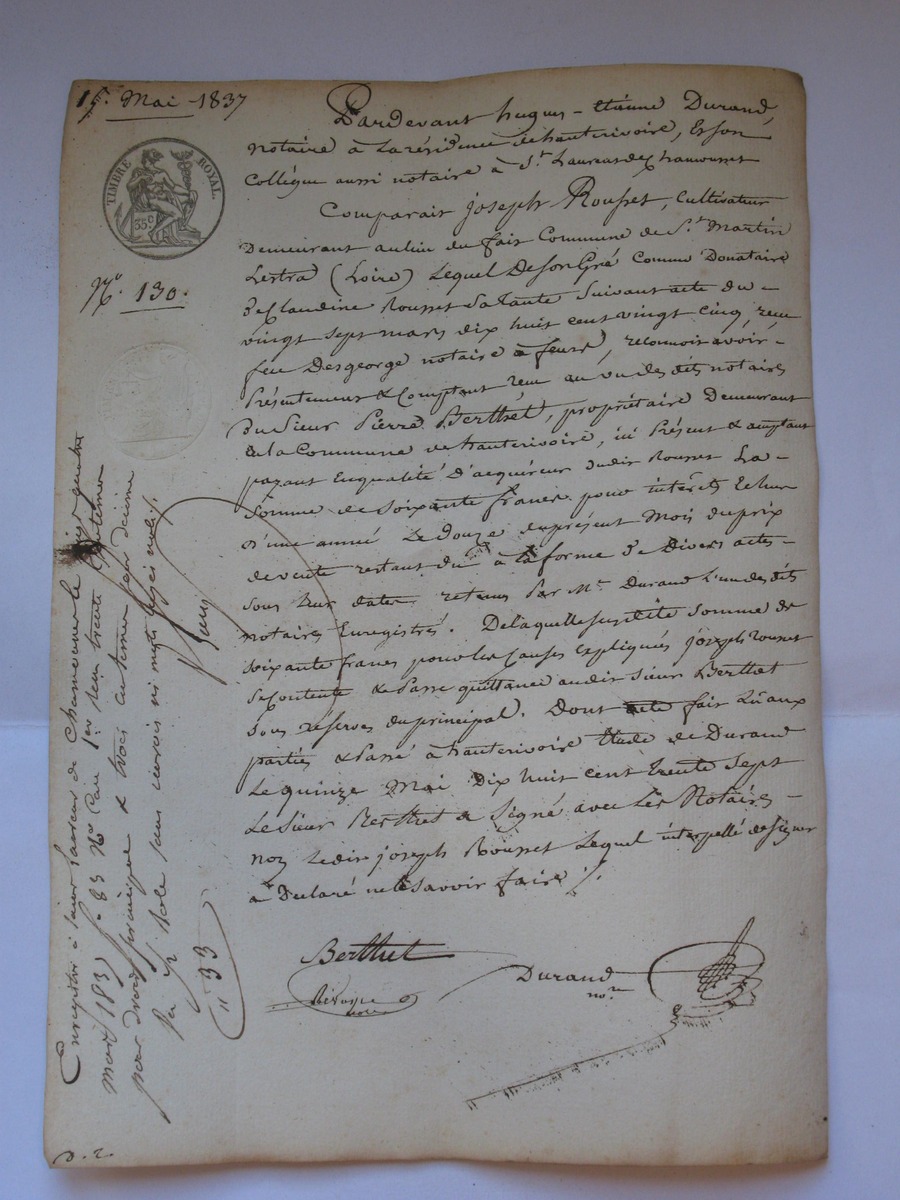 15 Mai 1837
TIMBRE ROYAL
35 C
N.º 130.
Pardevant hugues-Etienne Durand,
notaire à la résidence de hauterivoire, Et son
Collègue aussi notaire à S.t Laurent de Chamousset
Comparait joseph Rousset, Cultivateur
Demeurant au lieu du fait Commune de S.t Martin
Lestra (Loire) Lequel De son Gré Comme Donataire
De Claudine Rousset Sa tante Suivant acte du
vingt sept mars dix huit cent vingt cinq, reçu
feu Desgeorge notaire à feurs, reconnois avoir
Présentement & Comptant reçu au vu des dits notaires
Du Sieur Pierre Berthet, propriétaire Demeurant
en la Commune de hauterivoire, ici Présent & acceptant
payant En qualité D'acquéreur dudit Rousset La
Somme de Soixante francs pour intérêts Echus
D'une année Le Douze du présent Mois du prix
de vente restant du à la forme De Divers actes
sous leur dates retenus Par M.e Durand L'un des dits
notaires Enregistrés. De laquelle susdite Somme de
soixante francs pour les Causes Expliquées joseph Rousset
Se Contente & Passe quittance audit Sieur Berthet
Sous réserves du principal. Dont acte fait Lu aux
parties & Passé à hauterivoire Etude de Durand
Le quinze Mai Dix huit Cent trente Sept
Le Sieur Berthet a Signé avec Les Notaires
non Ledit joseph Rousset Lequel interpellé de signer
à Déclaré ne le Savoir faire ./.
Berthet
Durand
no.re
Enregistré à Saint Laurent de Chamousset le vingt quatre
mai 1837 f.o 83 R.o Case 1.ere reçu trente centimes
pour droit principal & trois centimes pour décime
11 33
D. R.